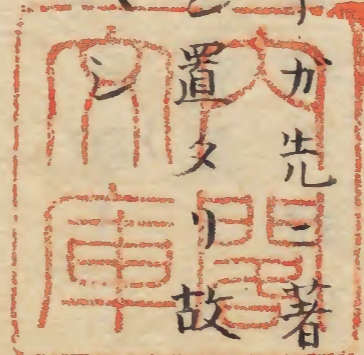 ガ先ニ著
置タリ故
シ
内閣文庫